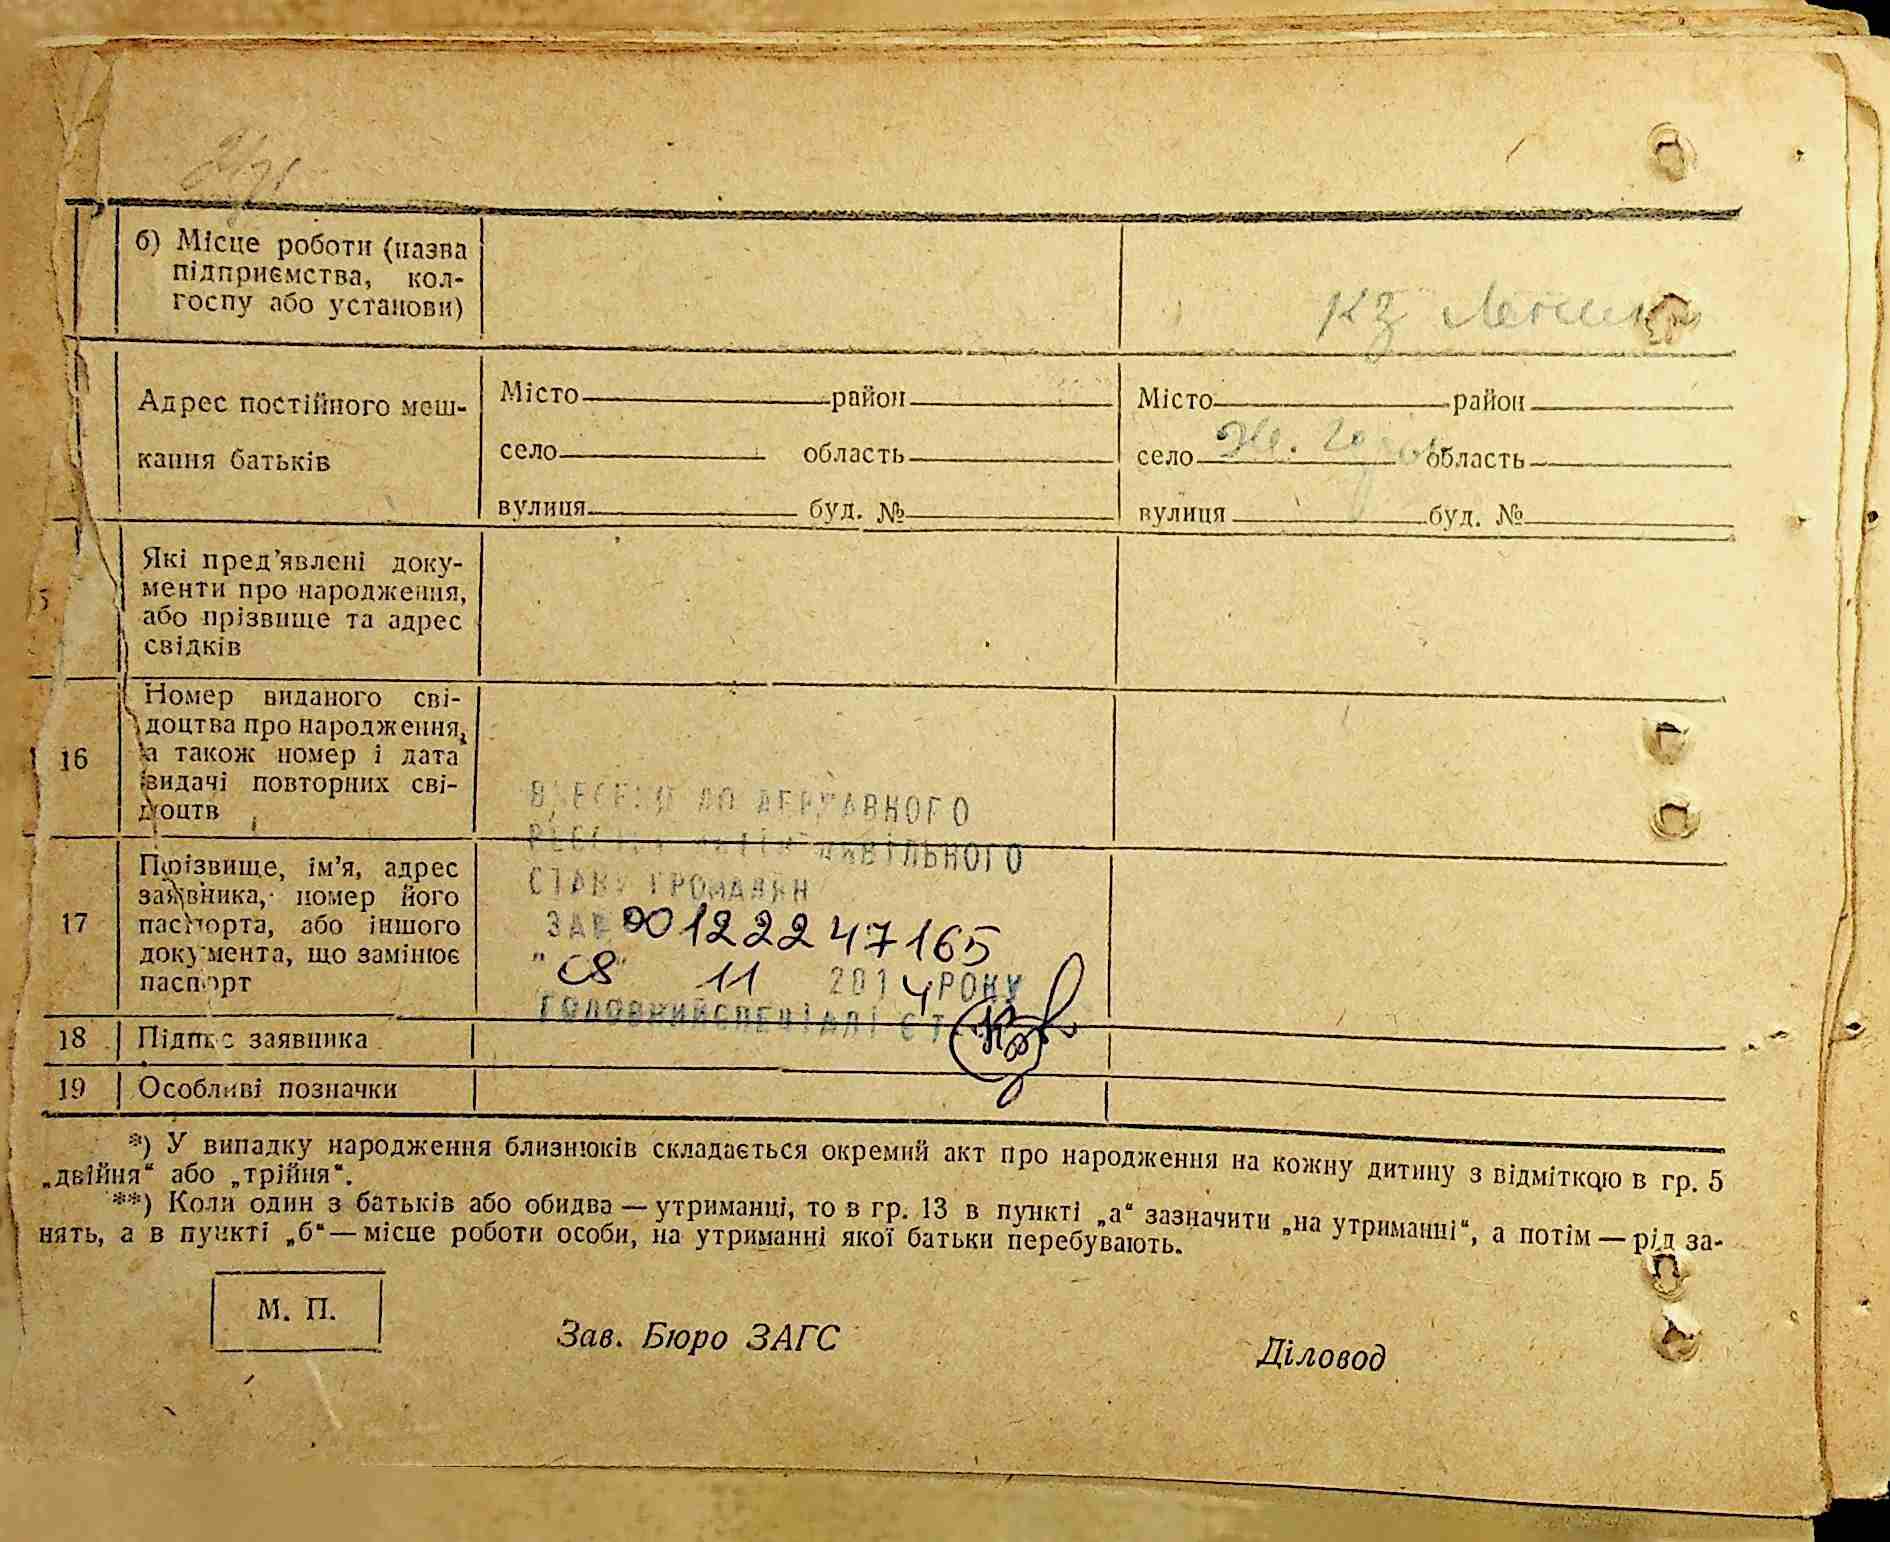 б) Місце роботи (назва
підприємства, кол-
госпу або установи)
КЗ Леніна
Адрес постійного меш-
кання батьків
Місто район
село область
вулиця буд. №
Місто район
село область
вулиця буд. №
Які пред’явлені доку-
менти про народження,
або прізвище та адрес
свідків
16
Номер виданого сві-
доцтва про народження,
а також номер і дата
видачі повторних сві-
доцтв
17
Прізвище, ім’я, адрес
заявника, номер його
паспорта, або іншого
документа, що замінює
паспорт
ВНЕСЕНО ДО ДЕРЖАВНОГО
РЕЄСТРУ АКТІВ ЦИВІЛЬНОГО
СТАНУ ГРОМАДЯН
ЗА № 00122247165
"08" 11 2014 РОКУ
ГОЛОВНИЙ СПЕЦІАЛІСТ
18 Підпис заявника
19 Особливі позначки
*) У випадку народження близнюків складається окремий акт про народження на кожну дитину з відміткою в гр. 5
„двійня“ або „трійня“.
**) Коли один з батьків або обидва — утриманці, то в гр. 13 в пункті „а“ зазначити „на утриманні“, а потім — рід за-
нять, а в пункті „б“ — місце роботи особи, на утриманні якої батьки перебувають.
М. П.
Зав. Бюро ЗАГС
Діловод